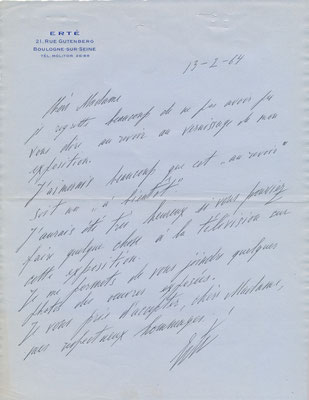 ERTÉ
21, RUE GUTENBERG
BOULOGNE-SUR-SEINE
TÉL. MOLITOR 26-89
13-2-64
Chère Madame
je regrette beaucoup de ne pas avoir pu
vous dire au revoir au vernissage de mon
exposition.
J'aimerais beaucoup que cet „au revoir"
soit un „à bientôt"
J'aurais été très heureux si vous pouviez
faire quelque chose à la télévision sur
cette exposition.
Je me permets de vous joindre quelques
photos des œuvres exposées.
Je vous prie d'accepter, chère Madame,
mes respectueux hommages,
Erté